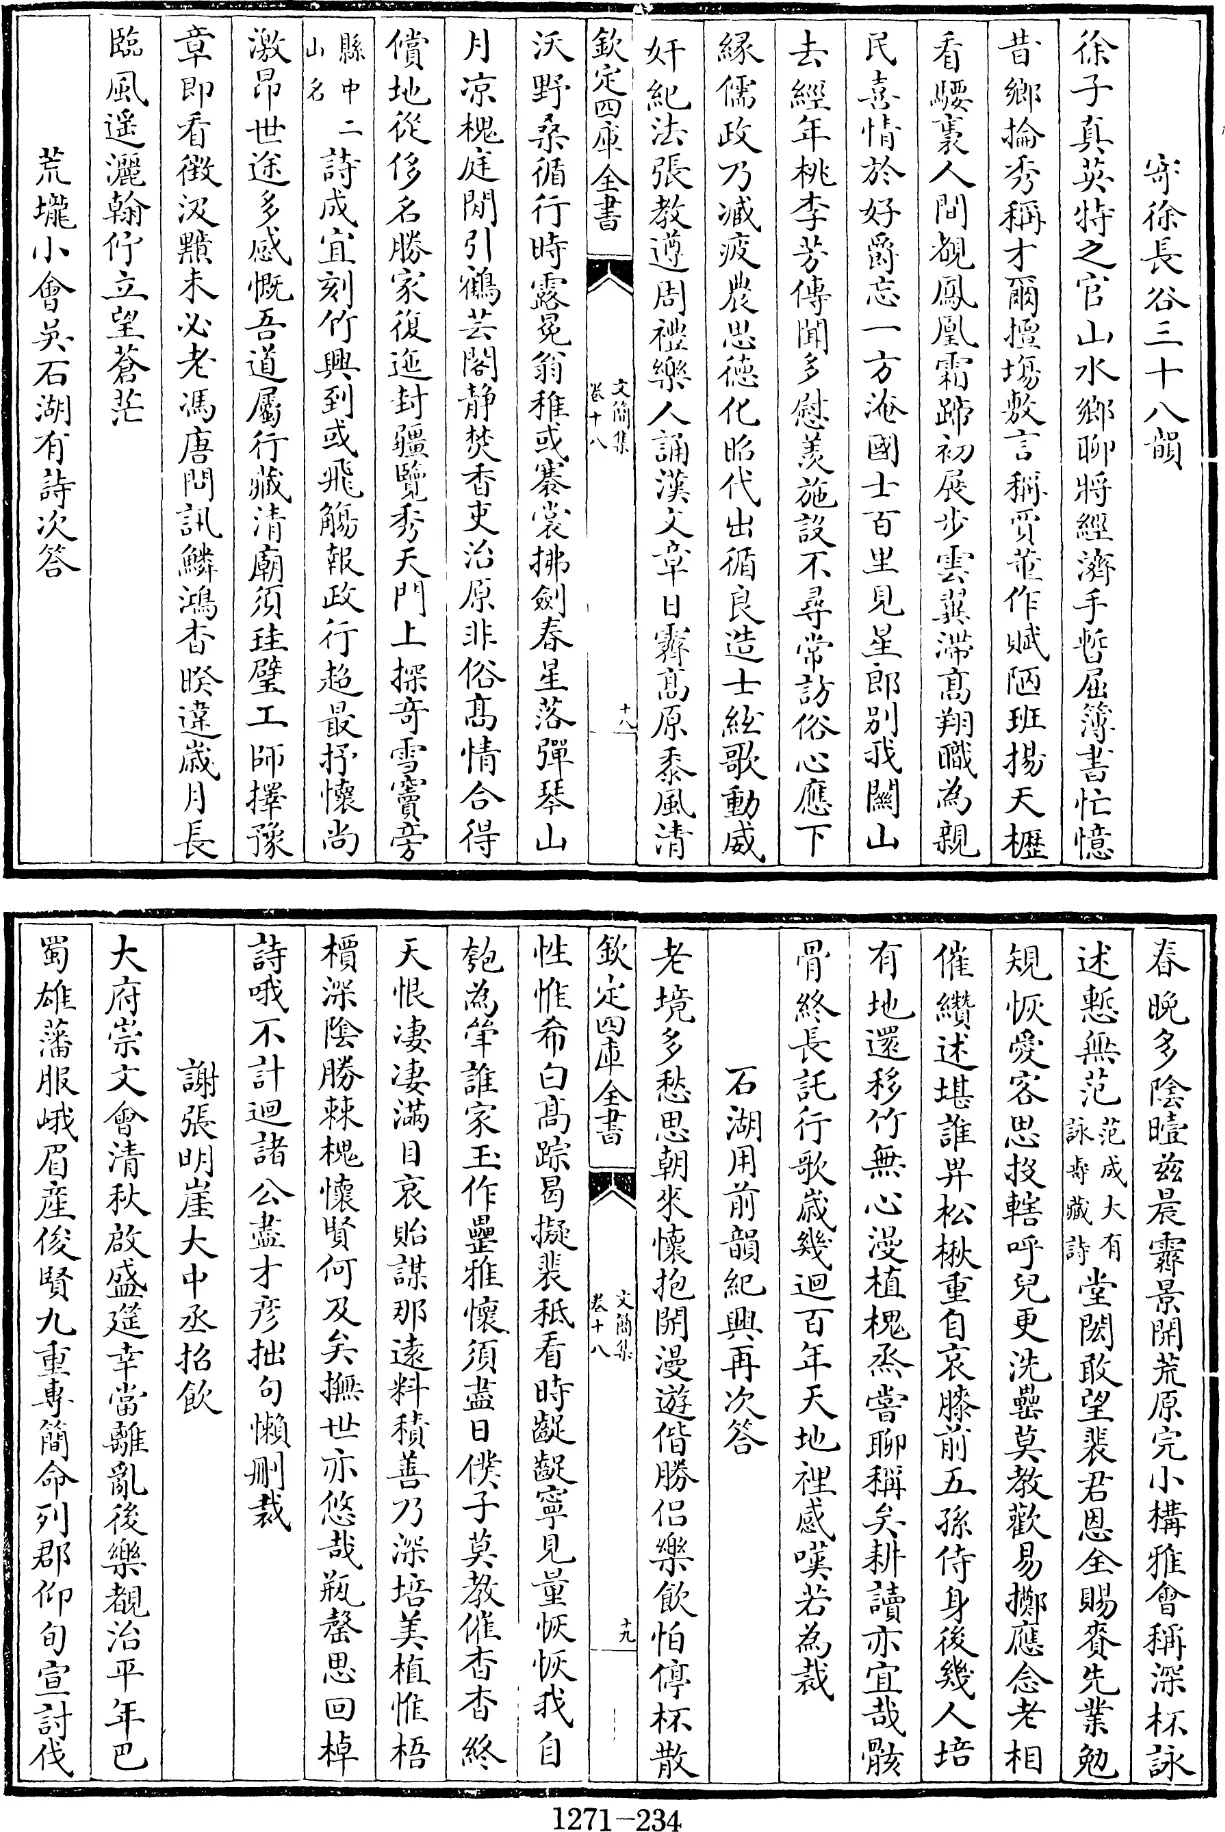 寄徐長谷三十八韻
徐子真英特之官山水鄉聊將經濟手暫屈簿書忙憶
昔鄉掄秀稱才爾擅塲敷言稱賈董作賦陋班揚天櫪
看騕褭人間覩鳳凰霜蹄初展步雲翼滯高翔職為親
民喜情於好爵忘一方淹國士百里見星郎别我闗山
去經年桃李芳傳聞多慰羡施設不尋常訪俗心應下
縁儒政乃減疲農思德化昭代出循良造士絃歌動威
奸紀法張教遵周禮樂人誦漢文章日霽高原黍風清
欽定四庫全書
文簡集
卷十八
十八
沃野桑循行時露冕翁稚或褰裳拂劍春星落彈琴山
月凉槐庭閒引鶴芸閣静焚香吏治原非俗高情合得
償地從侈名勝家復迤封疆覽秀天門上探竒雪竇旁
縣中
山名
二詩成宜刻竹興到或飛觴報政行超最抒懷尚
激昂世途多感慨吾道屬行藏清廟須珪璧工師擇豫
章即看徴汲黯未必老馮唐問訊鱗鴻杳暌違歲月長
臨風遥灑翰佇立望蒼茫
荒壠小會吳石湖有詩次答
春晚多陰曀兹晨霽景開荒原完小構雅會稱深杯詠
述慙無范
范成大有
詠壽藏詩
堂閎敢望裴君恩全賜賚先業勉
規恢愛客思投轄呼兒更洗罍莫教歡易擲應念老相
催纘述堪誰畀松楸重自哀膝前五孫侍身後幾人培
有地還移竹無心漫植槐烝嘗聊稱矣耕讀亦宜哉骸
骨終長託行歌歲幾迴百年天地裡感嘆若為裁
石湖用前韻紀興再次答
老境多愁思朝來懷抱開漫遊偕勝侣樂飲怕停杯散
欽定四庫全書
文簡集
卷十八
十九
性惟希白高踪曷擬裴秪看時齪齪寧見量恢恢我自
匏為斚誰家玉作罍雅懷須盡日僕子莫教催杳杳終
天恨凄凄滿目哀貽謀那遠料積善乃深培美植惟梧
檟深陰勝棘槐懷賢何及矣撫世亦悠哉瓶罄思回棹
詩哦不計迴諸公盡才彦拙句懶刪裁
謝張明崖大中丞招飲
大府崇文會清秋啟盛筵幸當離亂後樂覩治平年巴
蜀雄藩服峨眉産俊賢九重專簡命列郡仰旬宣討伐
1271-234